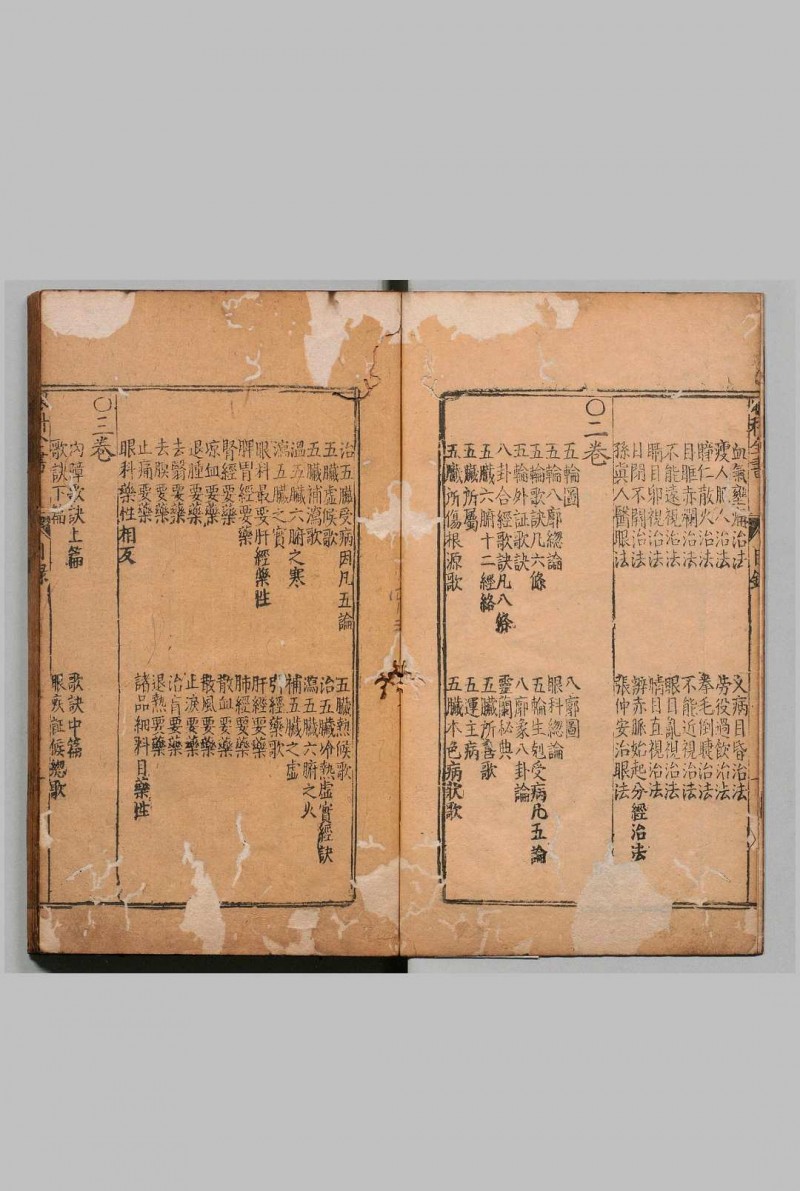 血氣壅痛治法 久病目昏治法
瘦人肥人治法 勞役過飲治法
瞳仁散火治法 拳毛倒睫治法
目眶赤爛治法 不能近視治法
不能遠視治法 眼目亂視治法
睛目卯視治法 睛目直視治法
日閉不開治法 辨赤脉始起分經治法
孫真人醫眼法 張仲安治眼法
〇二卷
五輪圖 八廓圖
五輪八廓總論 眼科總論
五輪歌訣凡六條 五輪生剋受病凡五論
五輪外証歌訣 八廓象八卦論
八卦合經歌訣凡八條 靈蘭秘典
五臟六腑十二經絡 五臟所喜歌
五臟所屬 五運主病
五臟所傷根源歌 五臟本色病狀歌
治五臟受病因凡五論 五臟熱候歌
五臟虛候歌 治五臟冷熱虛實經訣
五臟補瀉歌 瀉五臟六腑之火
溫五臟六腑之寒 補五臟之虛
瀉五臟之實 引經藥歌
眼科最要肝經藥性 肝經要藥
脾胃經要藥 肺經要藥
腎經要藥 散血要藥
凉血要藥 散風要藥
退腫要藥 止淚要藥
去翳要藥 治盲要藥
去膜要藥 退熱要藥
止痛要藥 諸品細料目藥性
眼科藥性相反
〇三卷
內障歌訣上篇 歌訣中篇
歌訣下篇 眼疾証候總歌